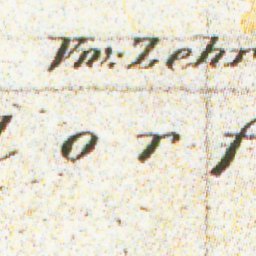 Vw: Zehr
dorf